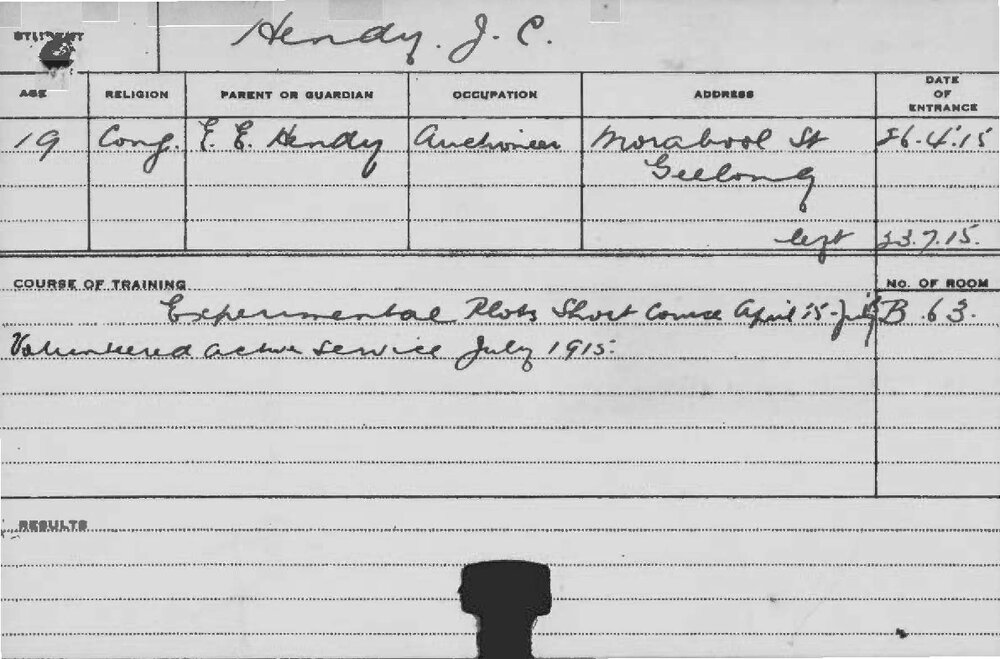 STUDENT Hendy. J. C.
AGE RELIGION PARENT OR GUARDIAN OCCUPATION ADDRESS DATE OF ENTRANCE
19 Cong. E. E. Hendy Auctioneer Morabool St 26.4.15
Geelong
left 23.7.15.
COURSE OF TRAINING No. OF ROOM
Experimental Plots Short Course April 15 - July B. 63.
Volunteered active service July 1915.
RESULTS